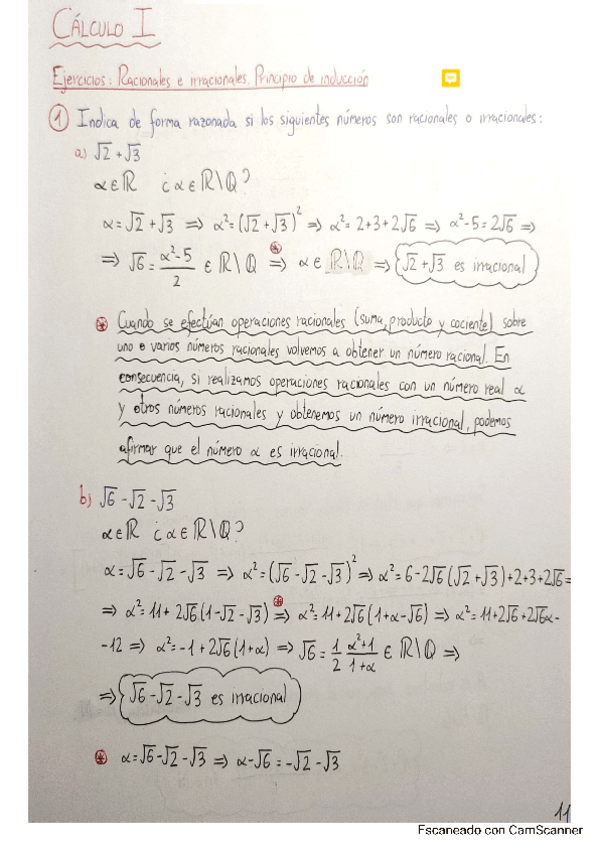 CÁLCULO I
Ejercicios: Racionales e irracionales. Principio de inducción
① Indica de forma razonada si los siguientes números son racionales o irracionales:
a) √2 + √3
α∈ℝ ¿α∈ℝ\ℚ?
α=√2+√3 ⇒ α²=(√2+√3)² ⇒ α²=2+3+2√6 ⇒ α²-5=2√6 ⇒
⇒ √6 = (α²-5)/2 ∈ ℝ\ℚ ⊛⇒ α∈ℝ\ℚ ⇒ {√2+√3 es irracional
⊛ Cuando se efectúan operaciones racionales (suma, producto y cociente) sobre
uno o varios números racionales volvemos a obtener un número racional. En
consecuencia, si realizamos operaciones racionales con un número real α
y otros números racionales y obtenemos un número irracional, podemos
afirmar que el número α es irracional.
b) √6 - √2 - √3
α∈ℝ ¿α∈ℝ\ℚ?
α=√6-√2-√3 ⇒ α²=(√6-√2-√3)² ⇒ α²=6-2√6(√2+√3)+2+3+2√6=
⇒ α²=11+2√6(1-√2-√3) ⊛⇒ α²=11+2√6(1+α-√6) ⇒ α²=11+2√6+2√6α-
-12 ⇒ α²=-1+2√6(1+α) ⇒ √6 = 1/2 (α²+1)/(1+α) ∈ ℝ\ℚ ⇒
⇒ {√6-√2-√3 es irracional
⊛ α=√6-√2-√3 ⇒ α-√6=-√2-√3
11
Escaneado con CamScanner